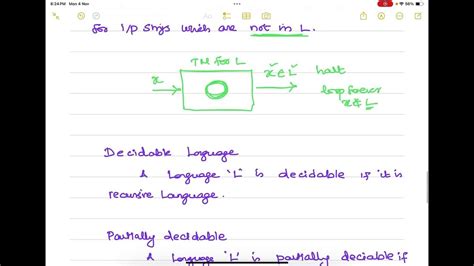 8:24 PM Mon 4 Nov
56%
for i/p strings which are not in L.
TM for L
x
x ∈ L halt
loop forever
x ∉ L
Decidable Language
A Language "L" is decidable if it is
recursive Language.
Partially decidable
A Language 'L' is partially decidable if